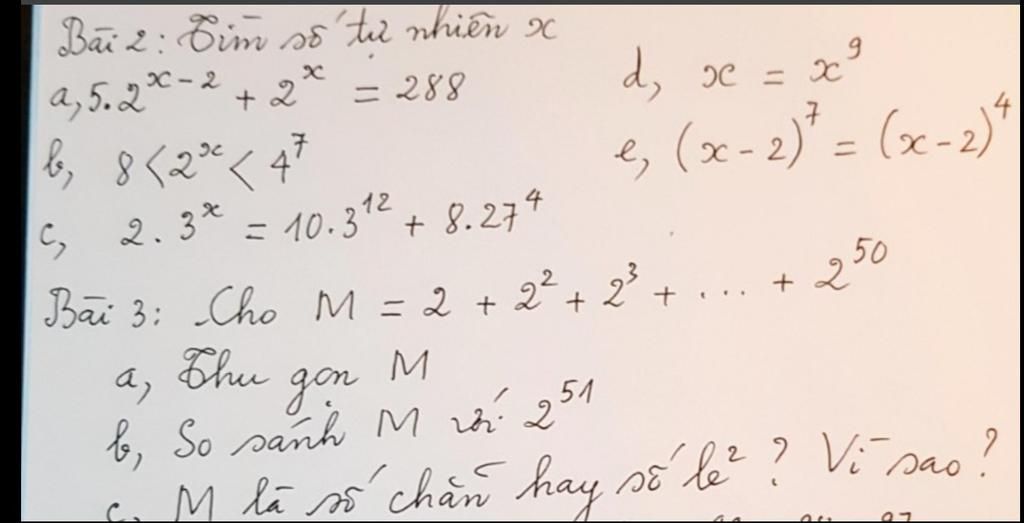 Bài 2: Tìm số tự nhiên x
a, 5.2^{x-2} + 2^x = 288
b, 8 < 2^x < 4^7
c, 2. 3^x = 10.3^{12} + 8.27^4
d, x = x^9
e, (x-2)^7 = (x-2)^4
Bài 3: Cho M = 2 + 2^2 + 2^3 + ... + 2^{50}
a, Thu gọn M
b, So sánh M với 2^{51}
c, M là số chẵn hay số lẻ ? Vì sao ?